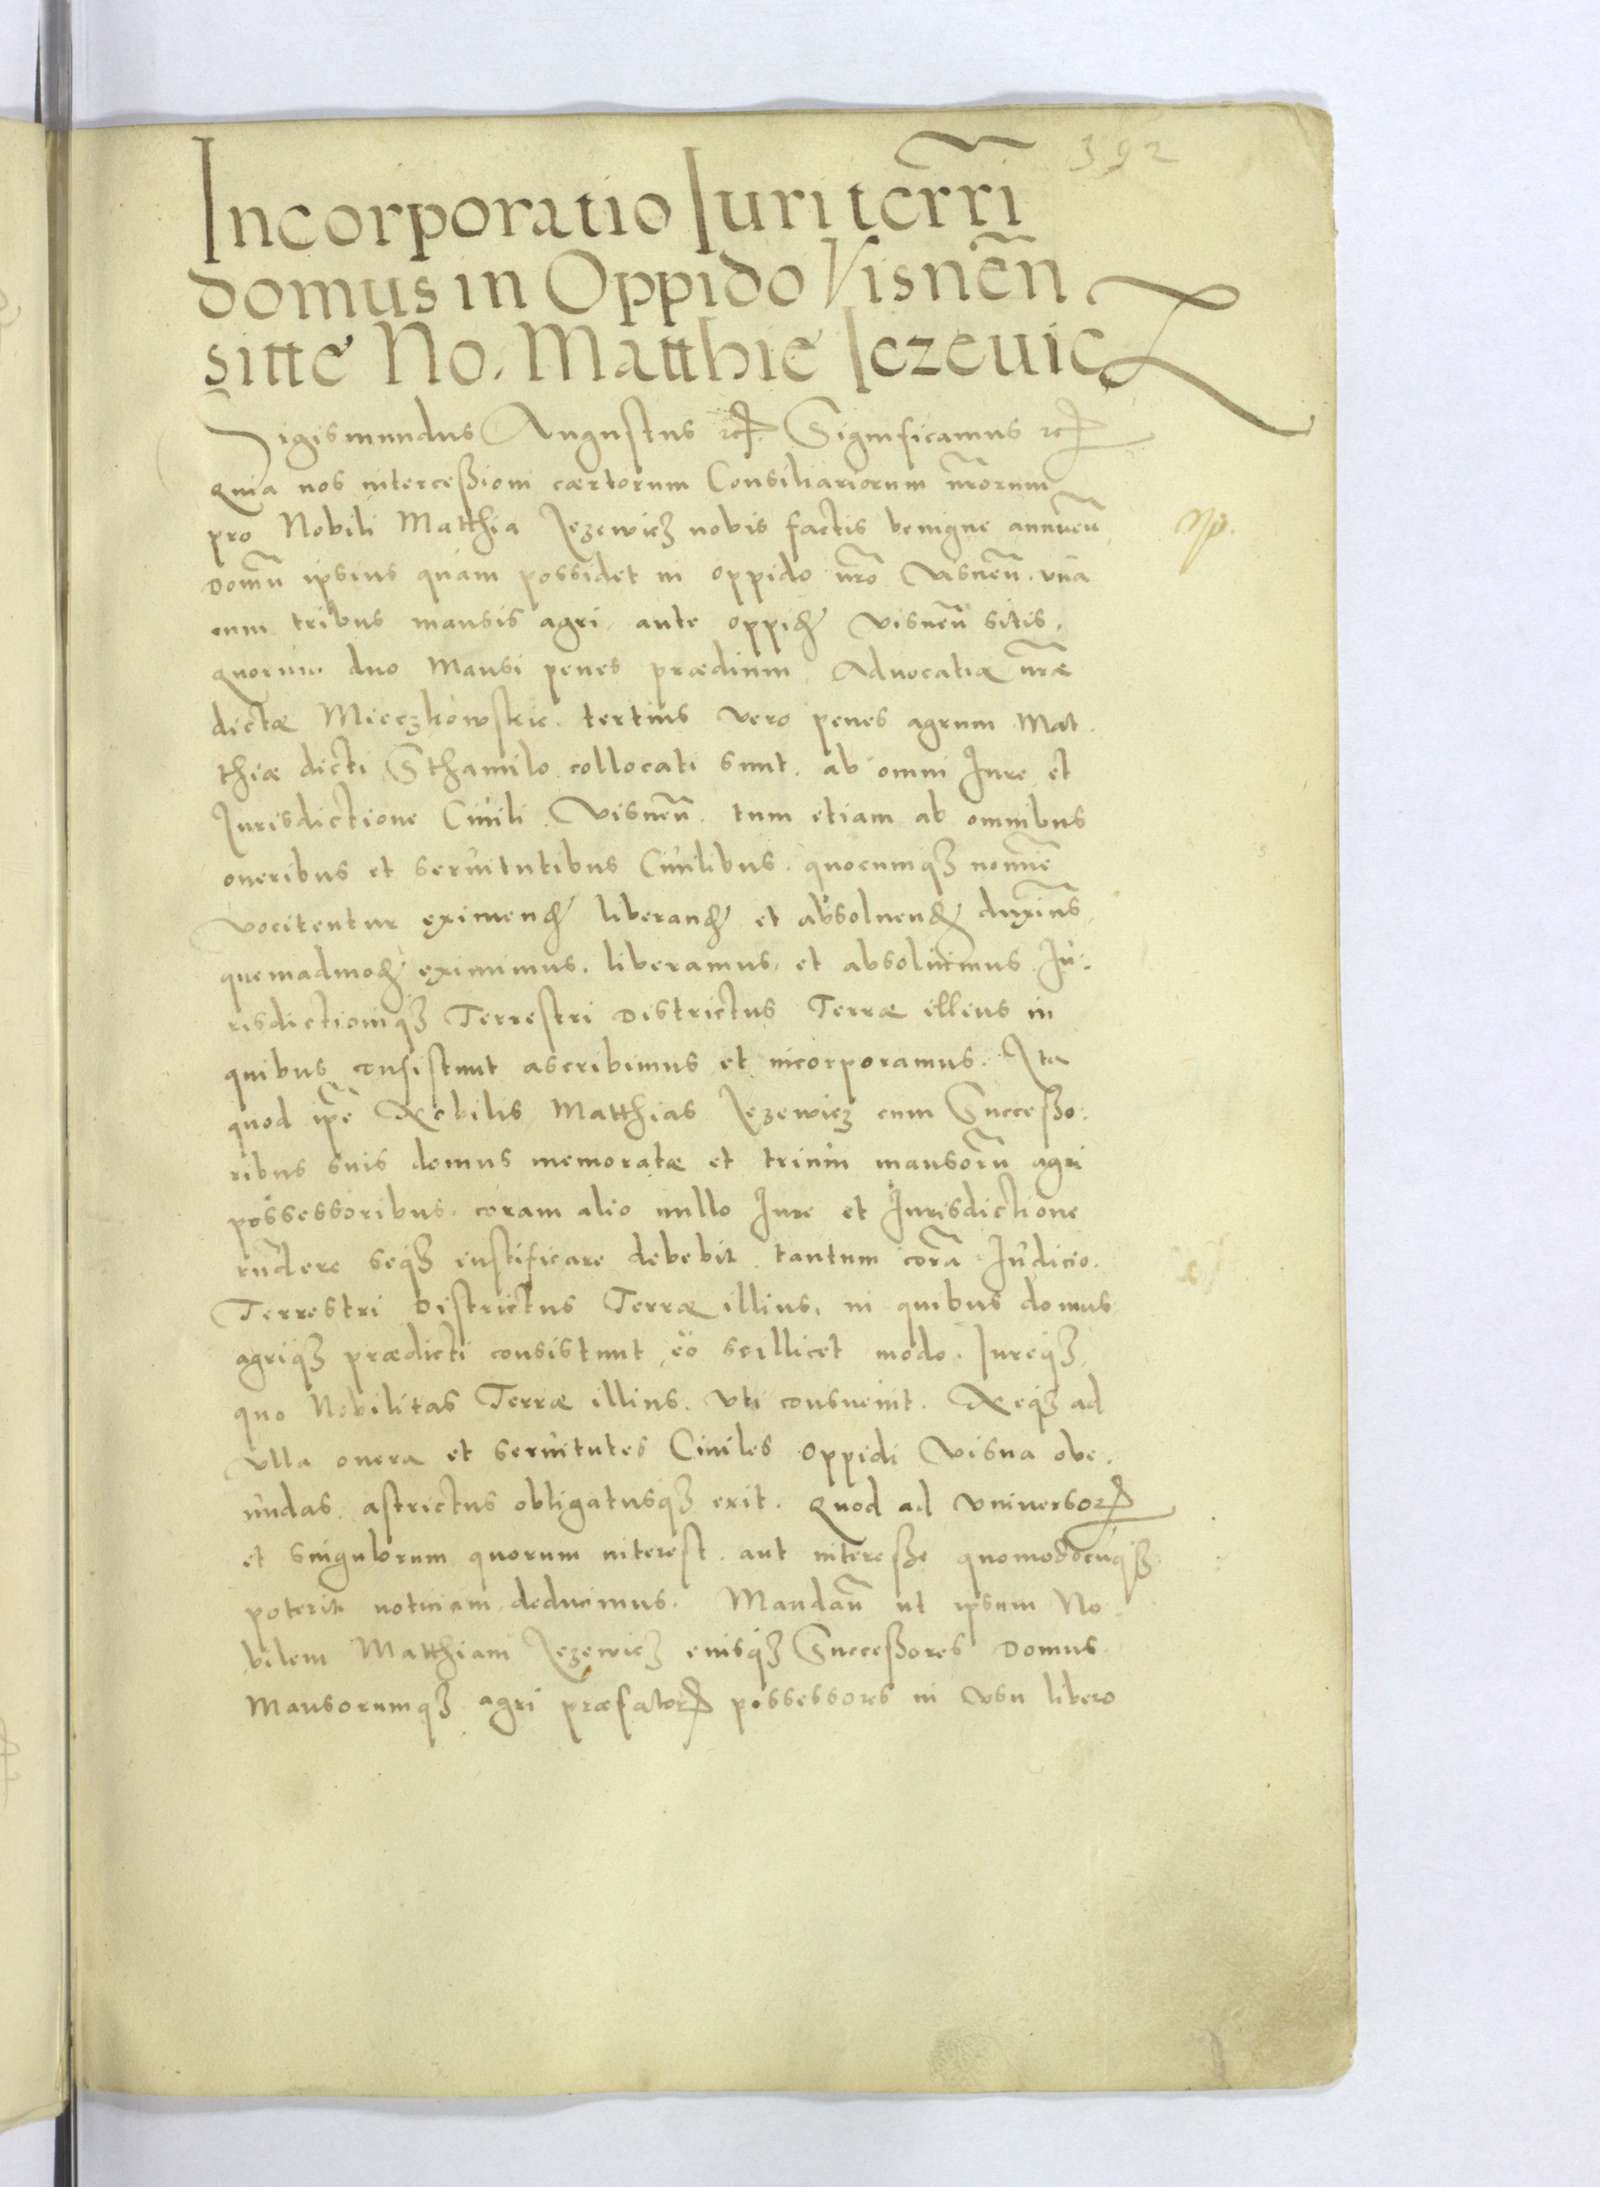 392
Incorporatio Iuri terrī
domus in Oppido Visnēn
sitte No. Matthie Iezewicz
Sigismundus Augustus etc. Significamus etc.
Quia nos intercessioni cærtorum Consiliariorum nrōrum
pro Nobili Matthia Jezewicz nobis factis benigne annuen̄
Domū ipsius quam possidet in oppido nrō Visnen̄. vna
cum tribus mansis agri, ante oppid Visnen̄ sitis.
quorum duo Mansi penes prædium Advocatiæ nrǣ
dictæ Mieczkowskie. tertius vero penes agrum Mat
thiæ dicti Sthamilo collocati sunt. ab omni Jure et
Jurisdictione Ciuili Visnen̄. tum etiam ab omnibus
oneribus et seruitutibus Ciuilibus. quocumqз nomīe
vocitentur eximend liberand et absoluend duximꝰ
quemadmod eximimus. liberamus, et absoluimus. Ju-
risdictioniqз Terrestri Districtus Terræ illius in
quibus consistunt ascribimus et incorporamus. Ita
quod ip̄e Nobilis Matthias Jezewicz cum Successo-
ribus suis domus memoratæ et trium mansorū agri
possessoribus. coram alio nullo Jure et Jurisdictione
rn̄dere seqз iustificare debebit tantum corā Judicio.
Terrestri Districtus Terræ illius, in quibus domus
agriqз prædicti consistunt eo scillicet modo. Jureqз
quo Nobilitas Terræ illius. vti consueuit. Neqз ad
vlla onera et seruitutes Ciuiles oppidi Visna obe-
undas. astrictus obligatusqз erit. Quod ad vniuersorꝝ
et singulorum quorum interest. aut interesse quomodocūqз
poterit noticiam deducimus. Mandan̄ ut ipsum No-
bilem Matthiam Jezewicz eiusqз Successores Domus
Mansorumqз agri præfatorꝝ possessores in vsu libero